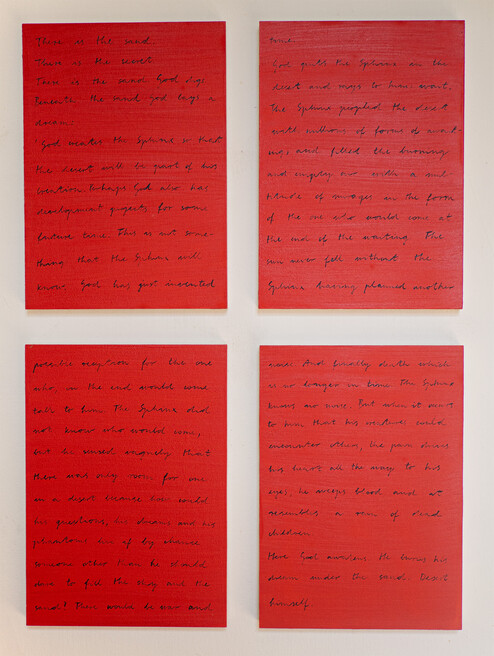 There is the sand
There is the secret
There is the sand God digs
Beneath the sand God lays a
dream:
God creates the Sphinx so that
the desert will be part of his
creation. Perhaps God also has
development projects for some
future time. This is not some-
thing that the Sphinx will
know. God has just invented
time.
God puts the Sphinx in the
desert and says to him: wait.
The Sphinx peopled the desert
with millions of forms of wait-
ing, and filled the burning
and empty air with a mul-
titude of images in the form
of the one who would come at
the end of the waiting. The
sun never fell without the
Sphinx having planned another
possible reception for the one
who in the end would come
talk to him. The Sphinx did
not know who would come,
but he sensed vaguely that
there was only room for one
in a desert because how could
his questions, his dreams and his
if by chance
someone other than he should
come to fill the sky and the
sand! There would be war and
And finally death which
is no longer in time. The Sphinx
knows no more. But when it occurs
to him that his creature could
encounter other, the pain drives
his heart all the way to his
eyes, he weeps blood and it
resembles a rain of dead
children.
Here God awakens. He buries his
dream under the sand. Beside
himself.